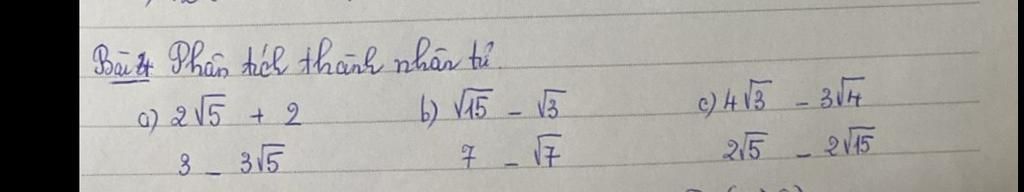 Bài 4 Phân tích thành nhân tử.
a) 2√5 + 2 b) √15 - √3 c) 4√3 - 3√4
3 - 3√5 7 - √7 2√5 - 2√15